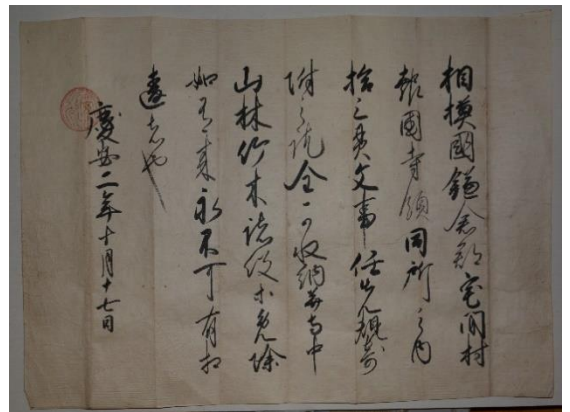 相摸國鎌倉郡宅間村
報國寺領同所之内
拾三貫文事任先規寄
附之訖全可収納并寺中
山林竹木諸役等免除
如有来永不可有相
違者也
慶安二年十月十七日